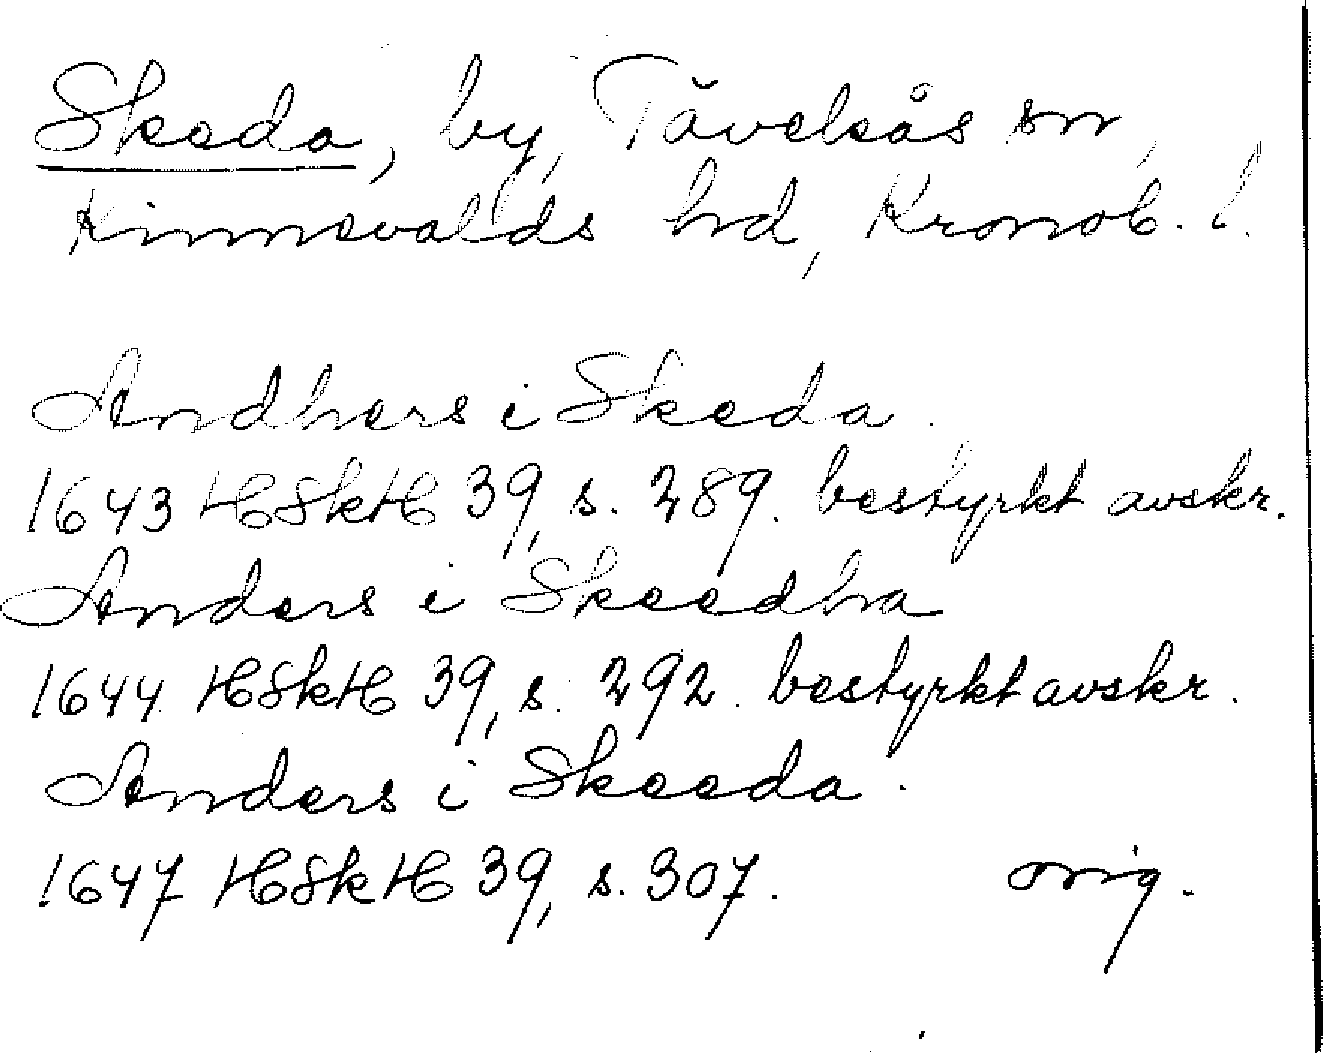 Skeda, by, Tävelsås sn,
Kinnevalds hd, Kronob. l.
Andhers i Skeda.
1643 HSkH 39, s. 289. bestyrkt avskr.
Anders i Skeedha
1644 HSkH 39, s. 292. bestyrkt avskr.
Anders i Skeeda.
1647 HSkH 39, s. 307. orig.